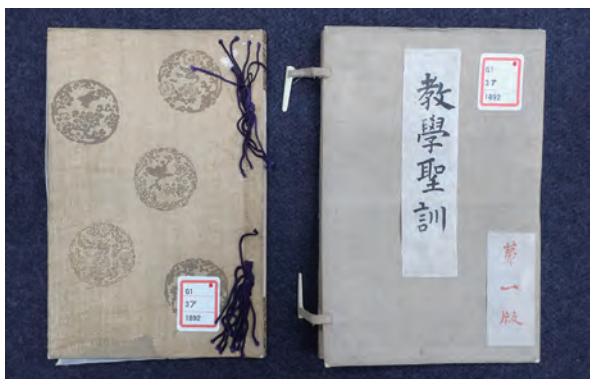 G1
3ア
1892
教學聖訓
G1
3ア
1892
第一版